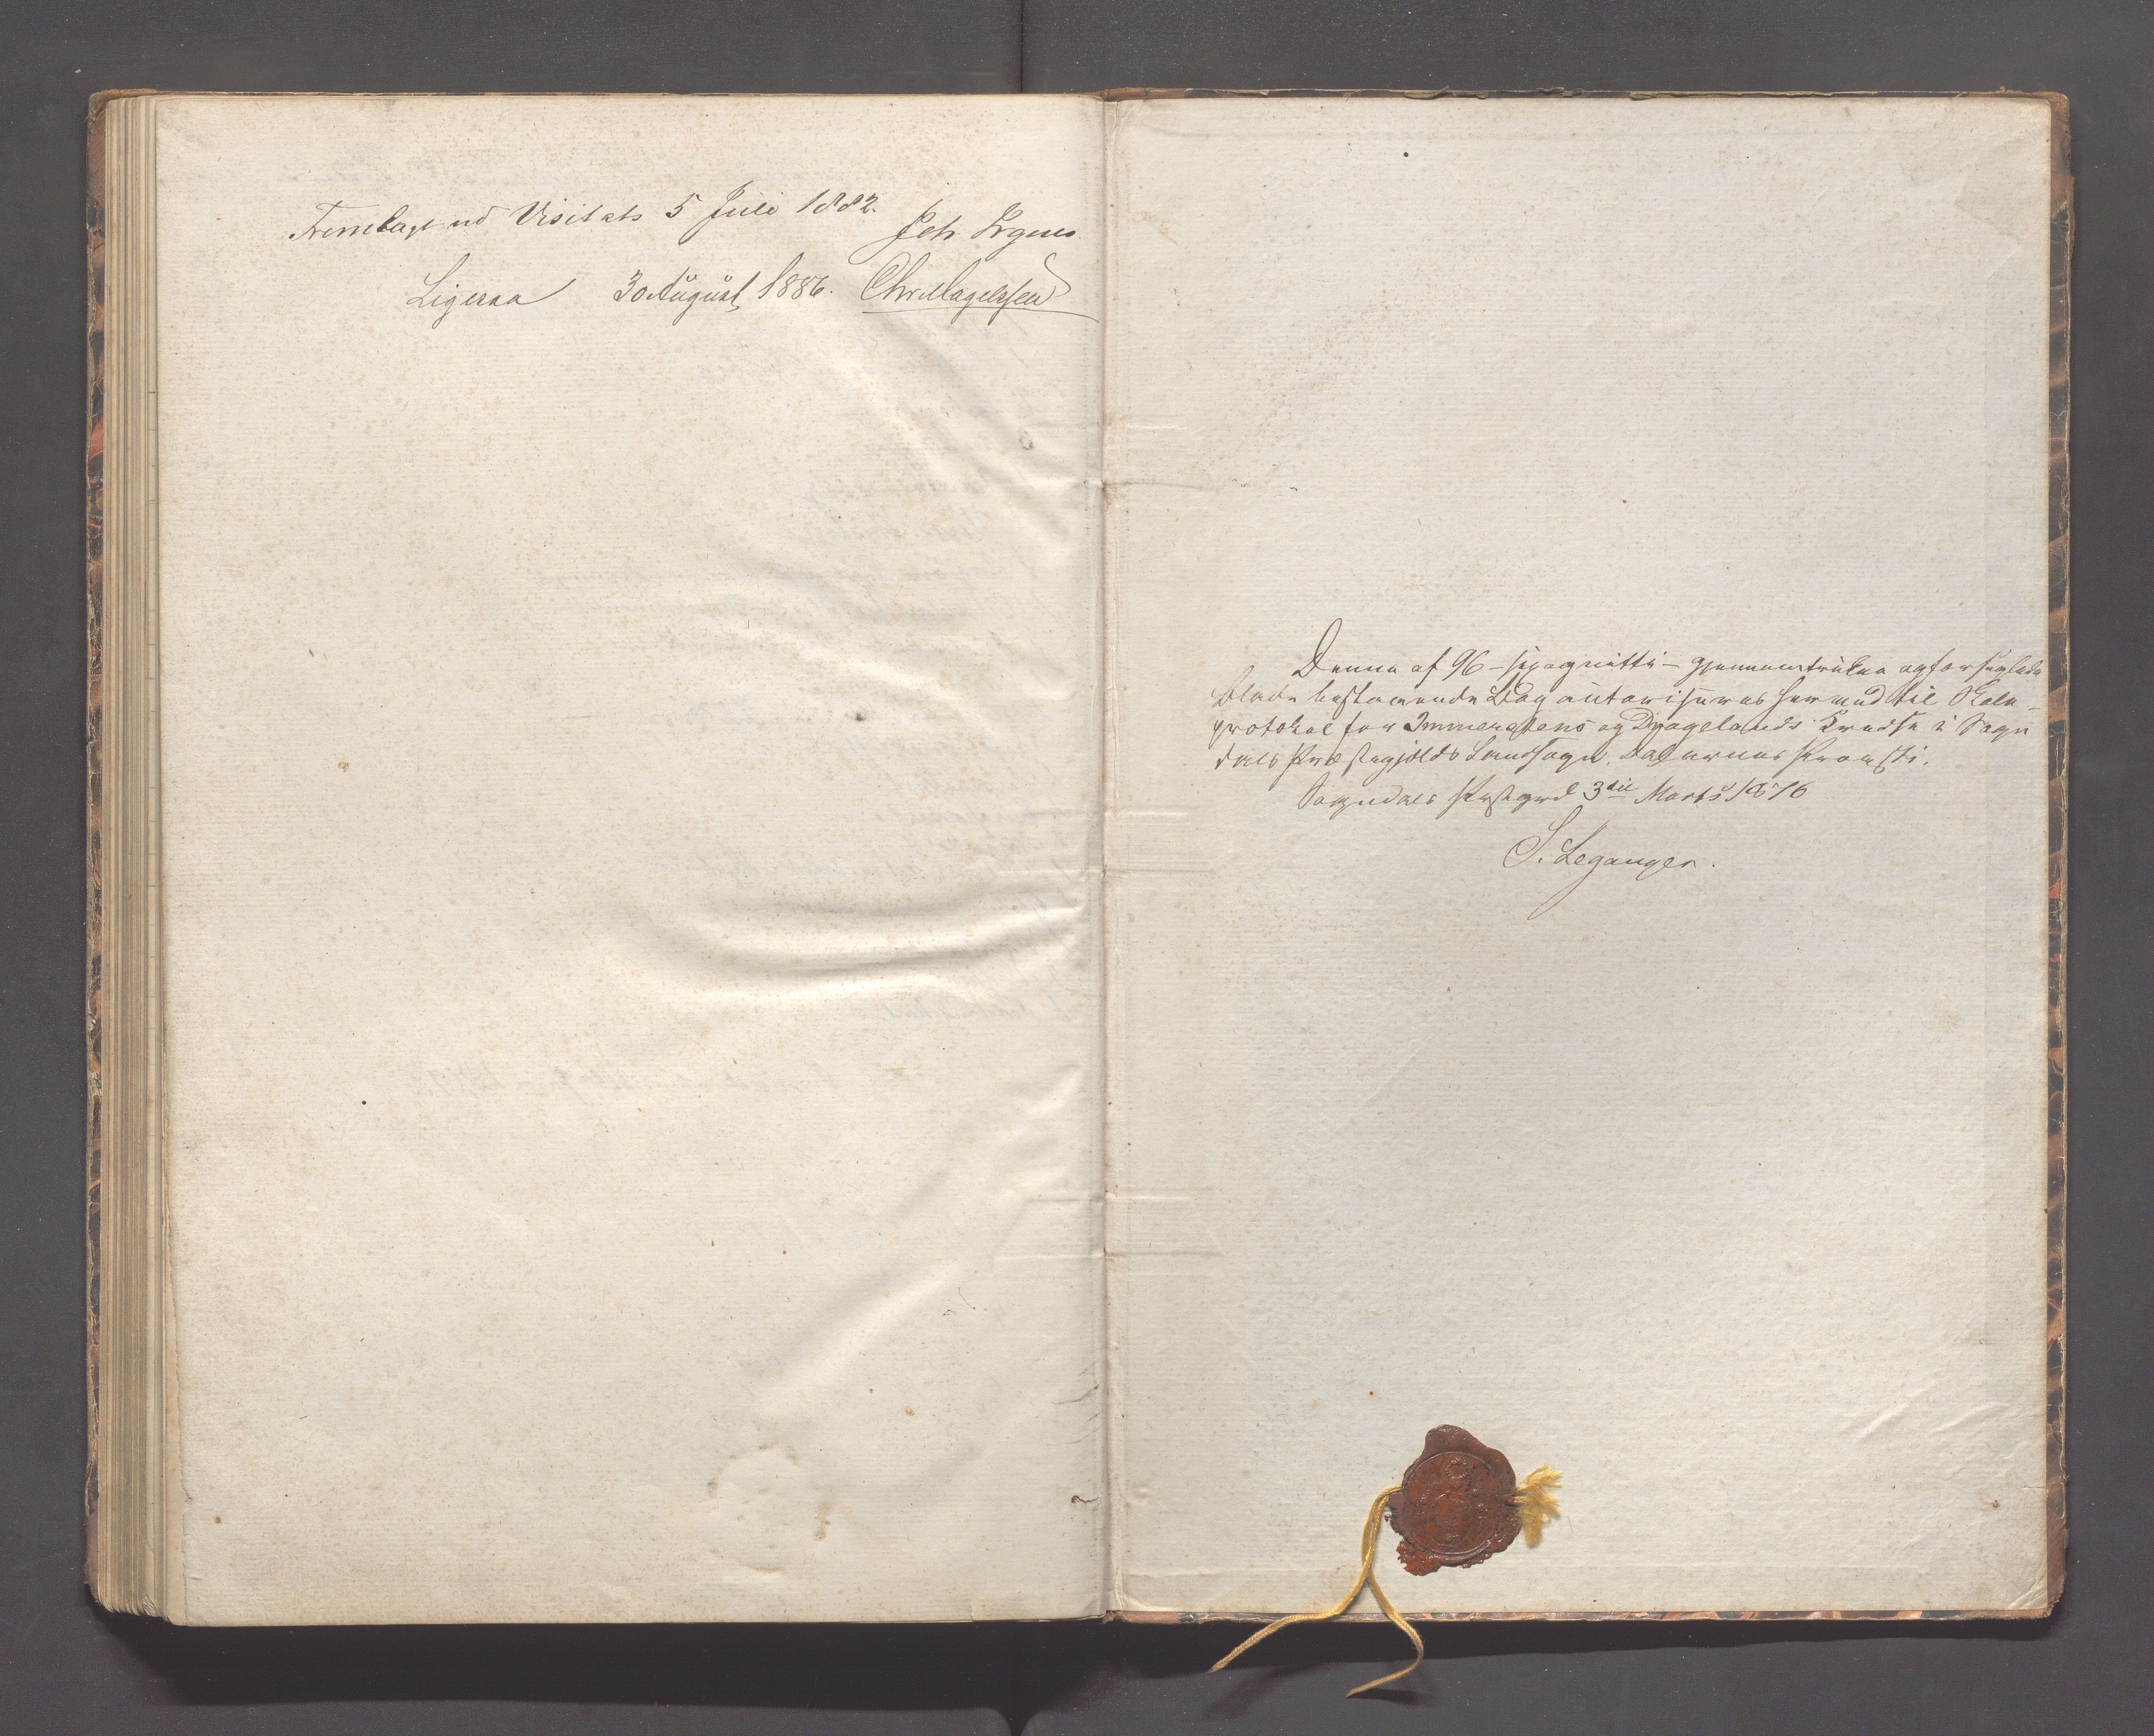 Fremlagt ved Visitats 5 Juli 1882.
Joh Irgens
Ligesaa 30 August 1886. Chr Magelssen
Denne af 96 - sexognitti - gjennemtrukne og forseglede
Blade bestaaende Bog autoriseres hermed til Skole-
protokol for Immerstens og Dragelands Kredse i Sogn
dals Præstegjelds Landsogn, Dalernes Provsti.
Sogndals Prstgrd 3die Marts 1876
S. Leganger.